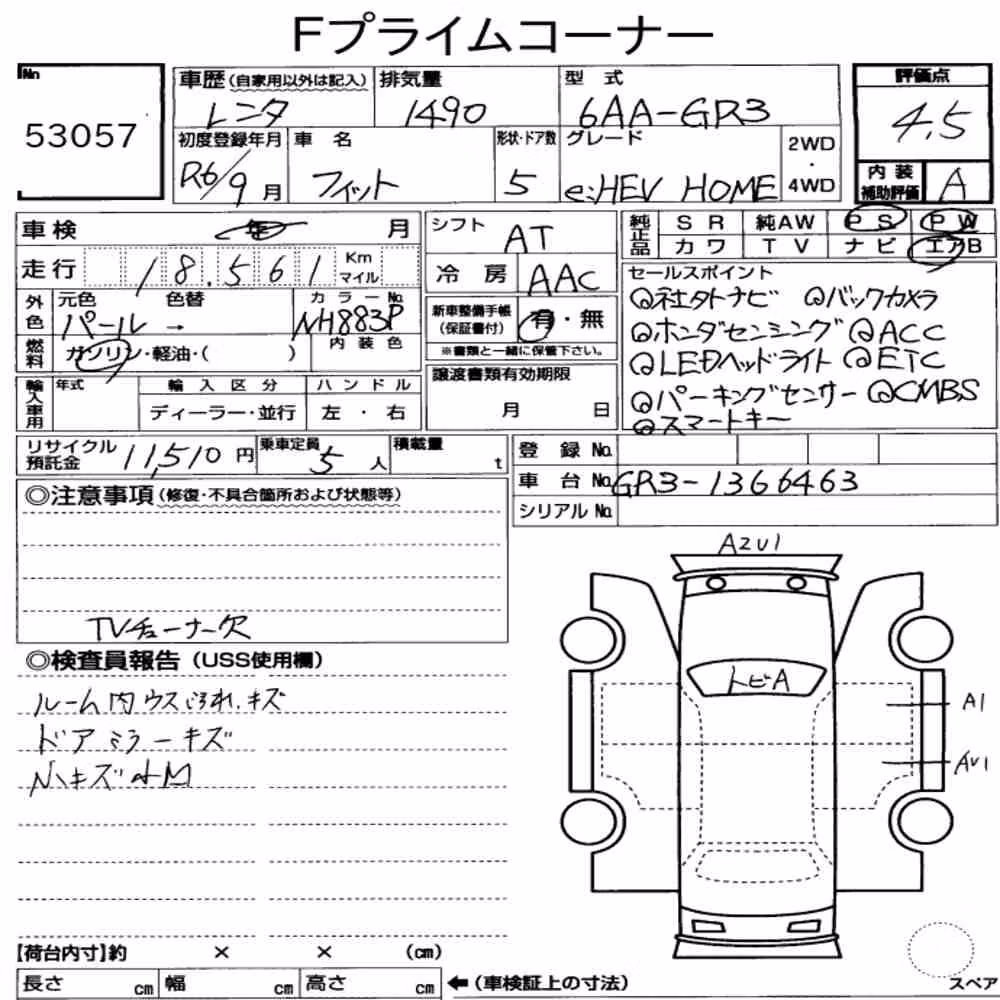 Fプライムコーナー
No
53057
車歴 (自家用以外は記入) 排気量 型式 評価点
レンタ 1490 6AA-GR3 4.5
初度登録年月 車名 形状・ドア数 グレード 2WD・4WD 内装補助評価
R6/9月 フィット 5 e:HEV HOME A
車検 年 月 シフト AT 純正品 SR 純AW PS PW
カワ TV ナビ エアB
走行 18.561 Km マイル 冷房 AAC
セールスポイント
外色 元色 色替 カラーNo. 新車整備手帳(保証書付) 有・無
パール → NH883P
◎社外ナビ ◎バックカメラ
◎ホンダセンシング ◎ACC
◎LEDヘッドライト ◎ETC
◎パーキングセンサー ◎CMBS
◎スマートキー
燃料 ガソリン・軽油・( ) 内装色 ※書類と一緒に保管下さい。
輸入車用 年式 輸入区分 ハンドル 譲渡書類有効期限
ディーラー・並行 左・右 月 日
リサイクル預託金 11,510円 乗車定員 5人 積載量 t
登録No.
車台No. GR3-1366463
シリアルNo.
◎注意事項(修復・不具合箇所および状態等)
TVチューナー欠
◎検査員報告(USS使用欄)
ルーム内ウスごれ.キズ
ドアミラーキズ
AZU1
トビA
A1
AU1
【荷台内寸】約 × × (cm)
長さ cm 幅 cm 高さ cm ←(車検証上の寸法)
スペア